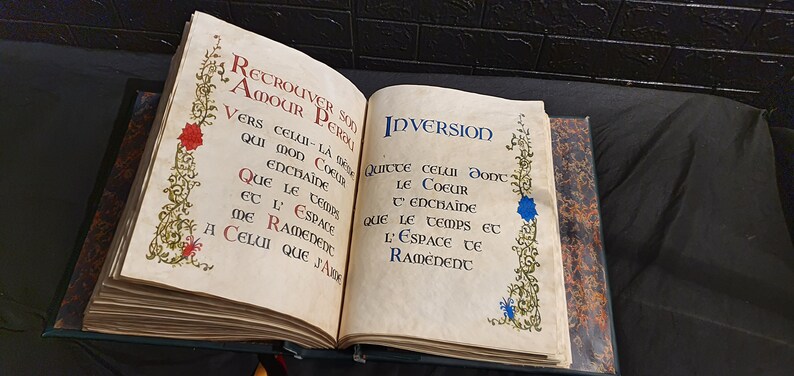 Retrouver son
Amour Perdu
Vers celui-là même
qui mon Coeur
enchaîne
Que le temps
et l'Espace
me Ramènent
a Celui que j'Aime
Inversion
Quitte celui Dont
le Coeur
t'enchaîne
que le temps et
l'Espace te
Ramènent